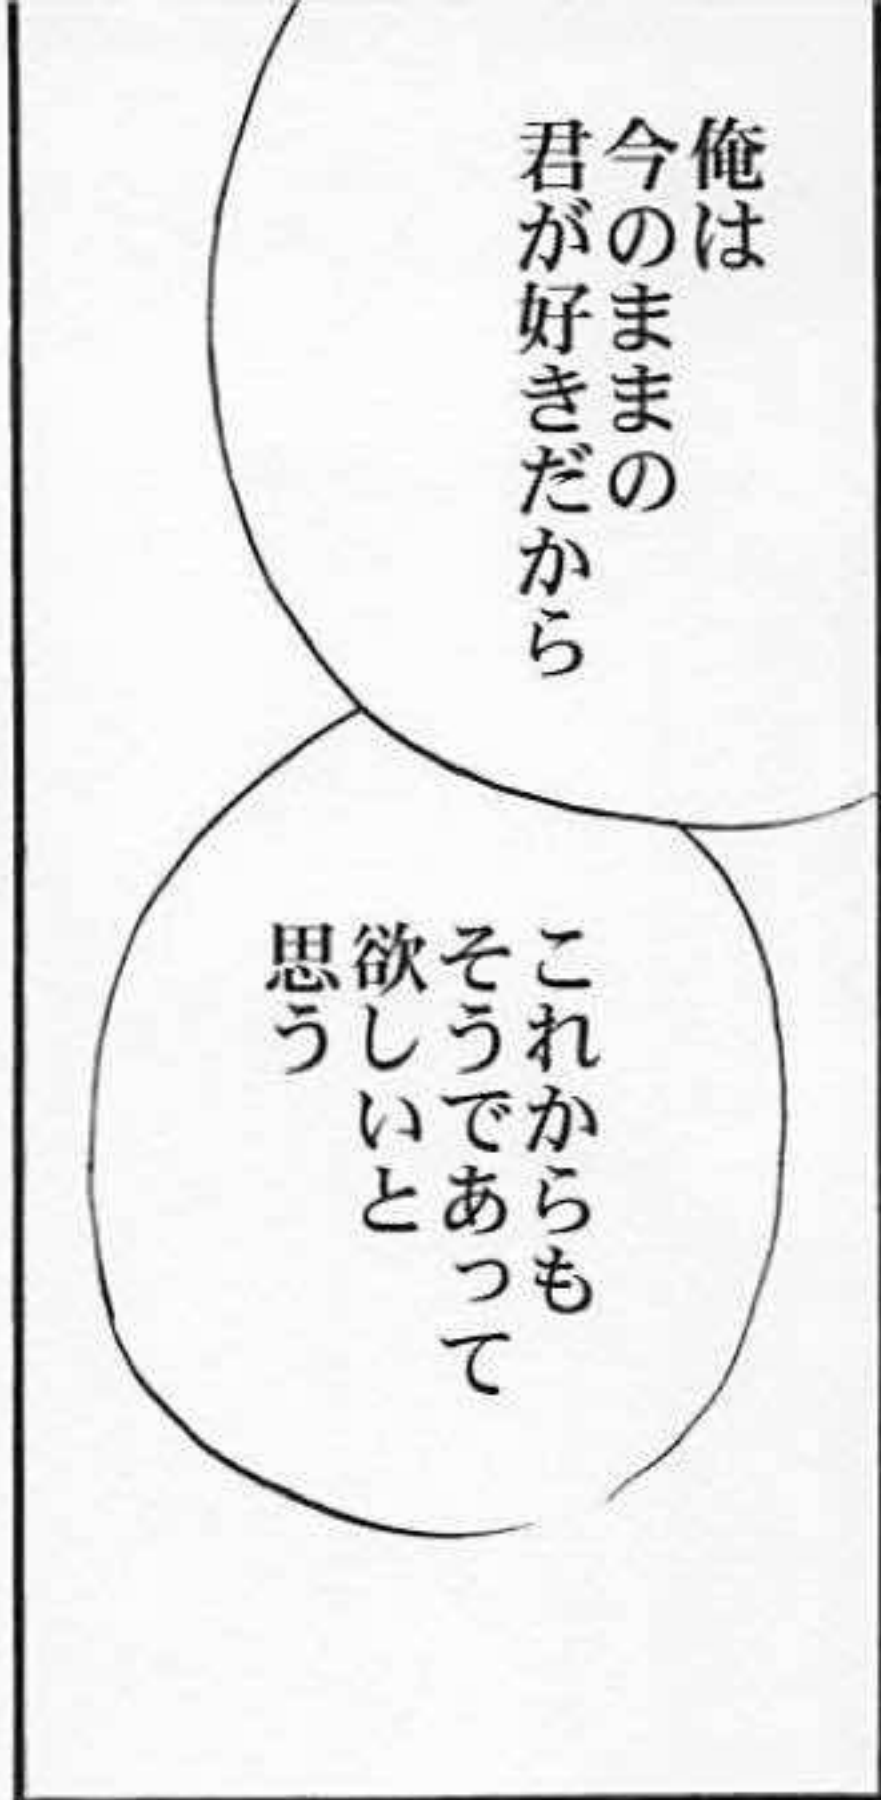 俺は
今のままの
君が好きだから
これからも
そうであって
欲しいと
思う